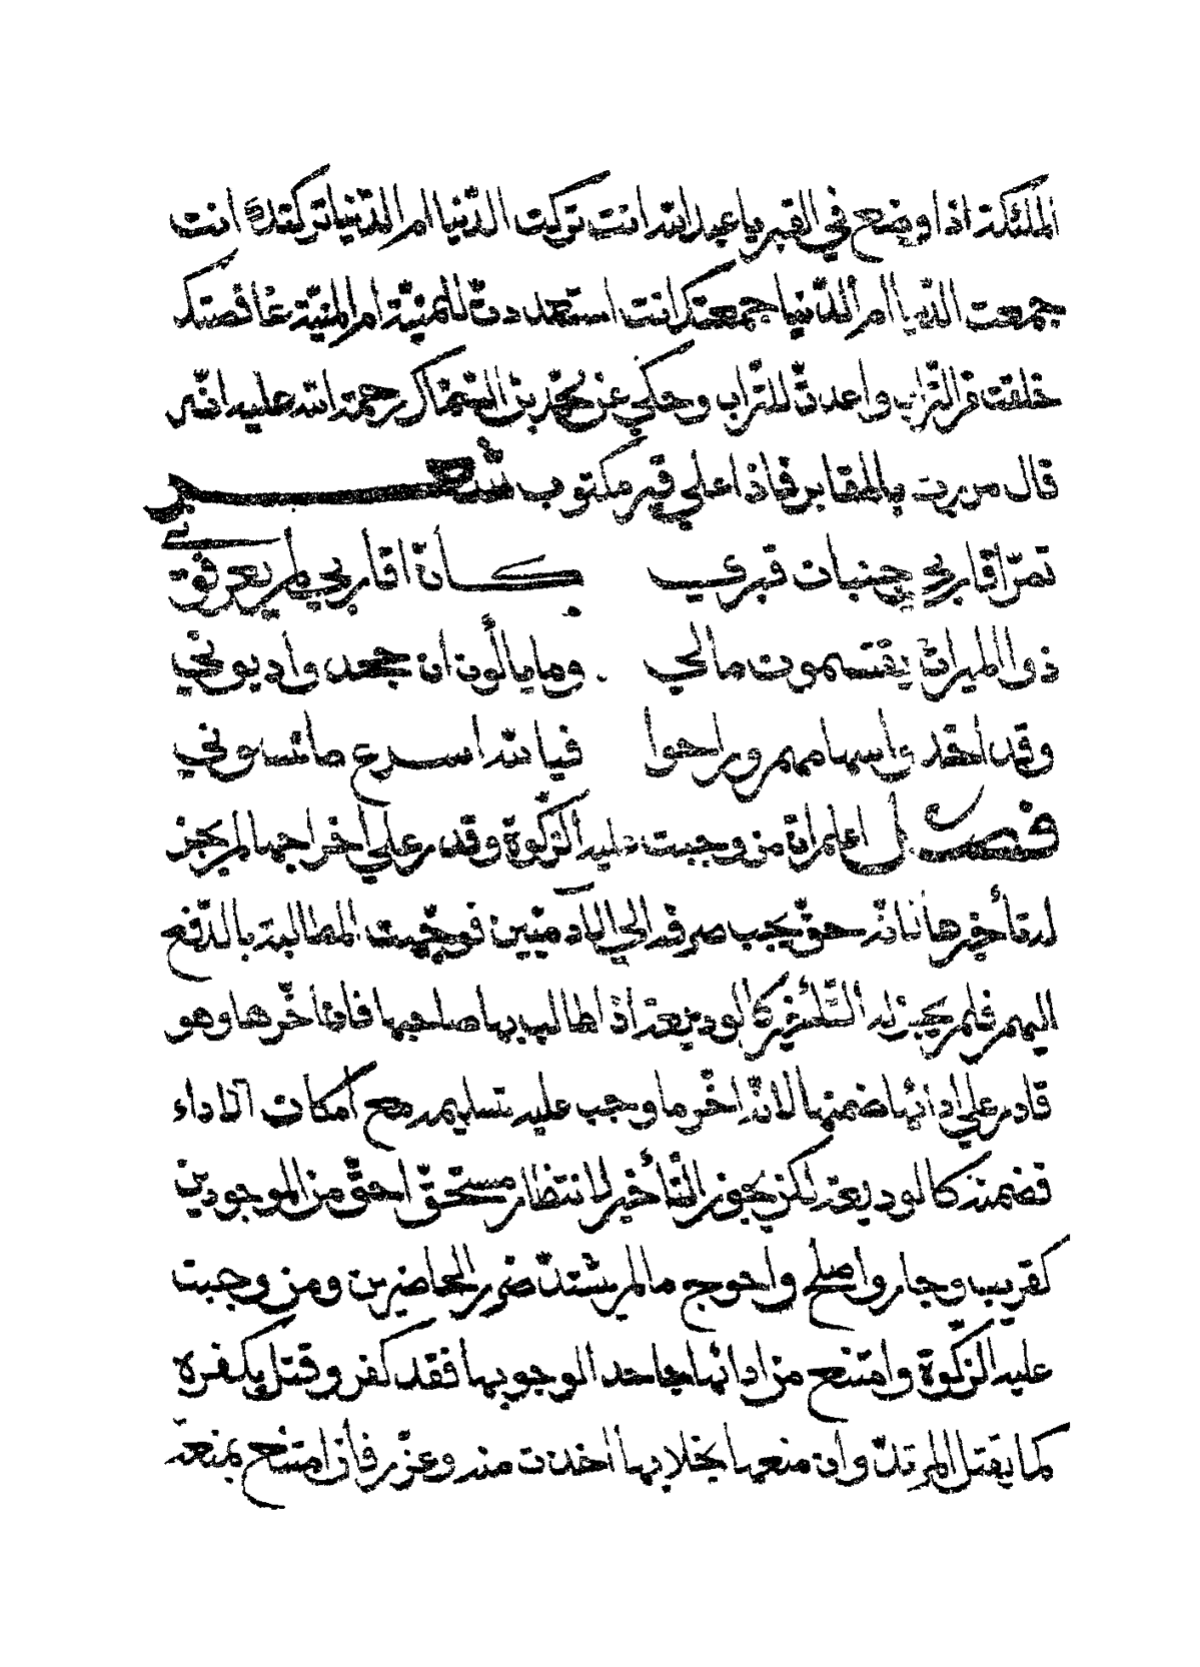 الملئكة اذا وضع في القبر يا عبد الله انت تركت الدّنيا ام الدّنيا تركتك انت
جمعت الدّنيا ام الدّنيا جمعتك انت استعددت للمنيّة ام المنيّة غافصتك
خلقت من التّراب واعدت للتّراب وحكي عن محمّد بن السّماك رحمة الله عليه انّه
قال مررت بالمقابر فاذا علي قبر مكتوب شعـــر
تمرّ اقاربي جنبات قبري كأنّ اقاربي لم يعرفوني
ذوا الميراث يقتسمون مالي وما يألون ان جحدوا ديوني
وقد اخذوا سهامهم وراحوا فيا لله اسرع ما نسوني
فصـــل اعلم انّ من وجبت عليه الزّكوة وقدر علي اخراجها لم يجز
له تأخيرها لانّه حقّ يجب صرفه الي الآدميّين توجّهت المطالبة بالدّفع
اليهم فلم يجز له التّأخير كالوديعة اذا طالب بها صاحبها فان أخّرها وهو
قادر علي ادائها ضمنها لانّه اخّر ما وجب عليه تسليمه مع امكان الاداء
فضمنه كالوديعة لكن يجوز التّأخير لانتظار مستحقّ احقّ من الموجودين
كقريب وجار واصلح واحوج ما لم يشتدّ ضرر الحاضرين ومن وجبت
عليه الزّكوة وامتنع من ادائها جاحد الوجوبها فقد كفر وقتل بكفره
كما يقتل المرتدّ وان منعها بخلا بها اخذت منه وعزّر فان امتنع بمنعة